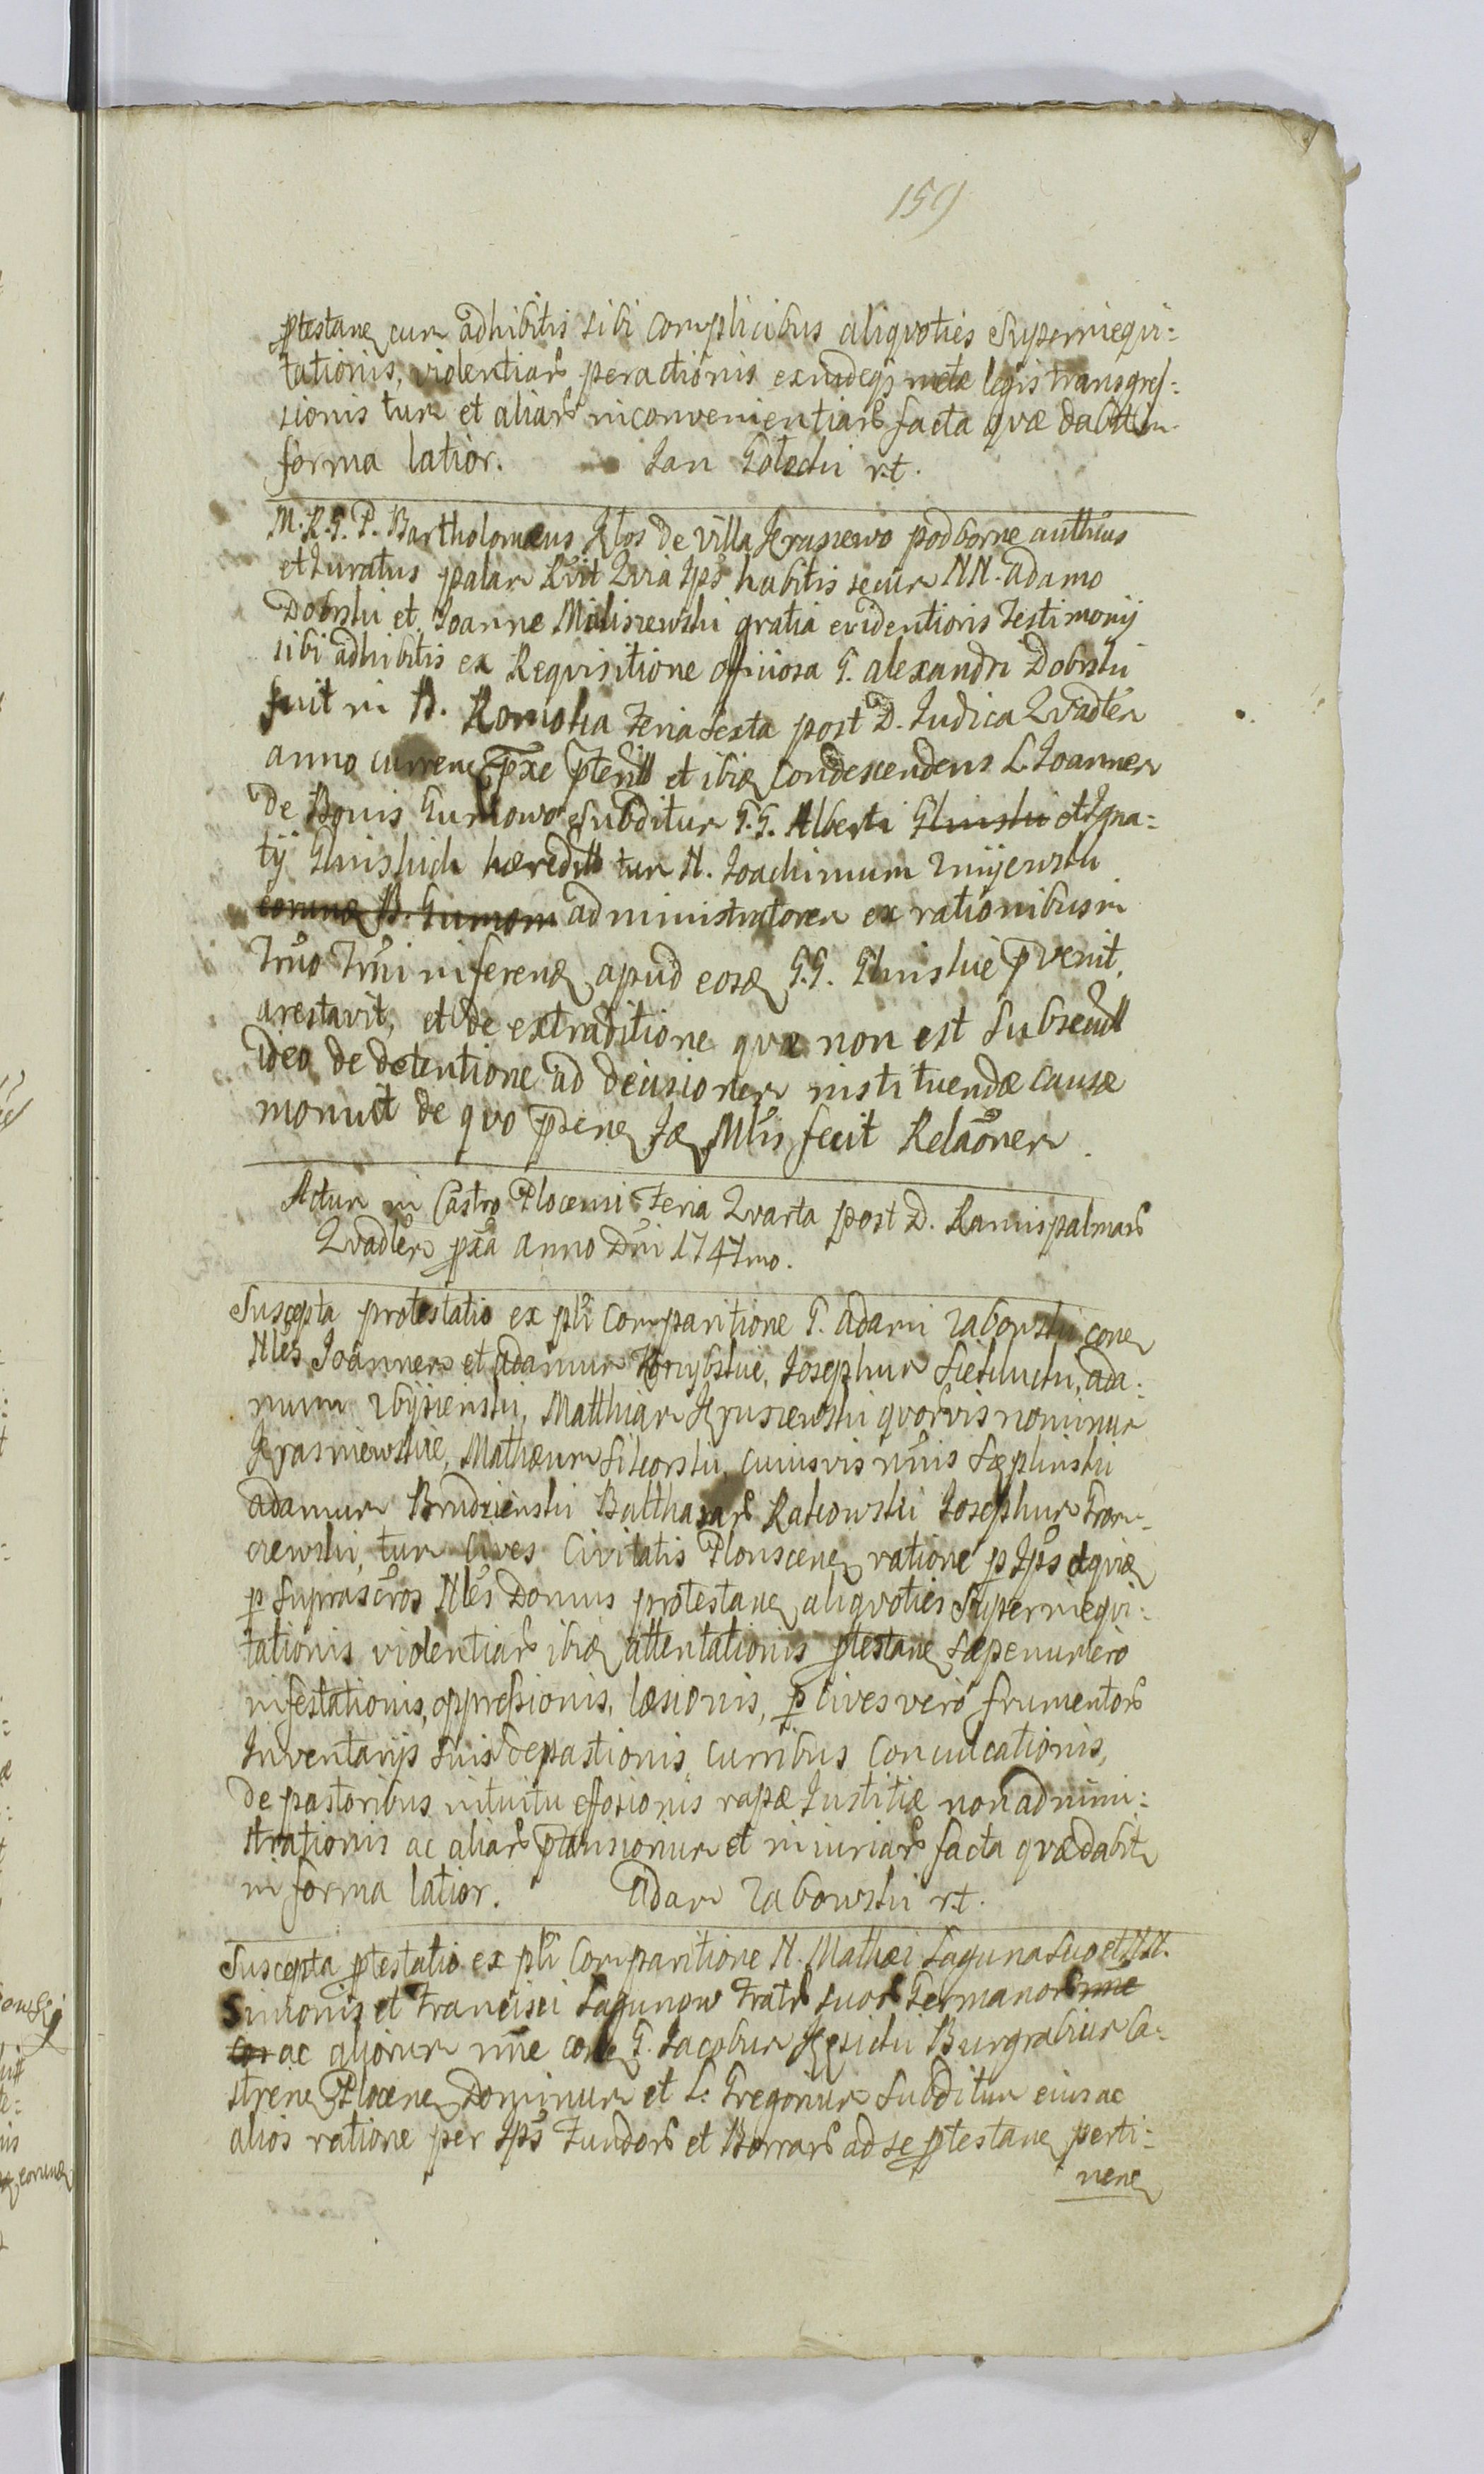 159
ptestane cum adhibitis sibi complicibus aliqvoties Superineqvi:
tationis, violentiar peractionis exindeqz metæ legis transgres:
sionis tum et aliar inconvenientiar facta qvæ dabit in
forma latior. Jan Golocki rt.
M. R. G. P. Bartholomæus Kłos de Villa Krasiewo podborne authius
et Juratus palam Rvit Qvia Ips habitis secum NN. Adamo
Dobski et Joanne Miliszewski gratia evidentioris Testimonij
sibi adhibitis ex Reqvisitione officiosa G. Alexandri Dobski
fuit in B. Romoka Feria Sexta post D. Judica Qvadler
anno currene pxe pterill et ibiq condescendens L Joannem
de Bonis Gumowo Subditum G.G. Alberti Glinski et Igna:
tij Glinskich hæredill tum N. Joachimum Zmijewski
eorunq B. Gumow administratorem ex rationibus in
Tmo Tmi inferenq apud eosq G.G. Glinskie pvenit,
arestavit, et de extraditione qvæ non est Subsecull
ideo de detentione ad decisionem instituendæ causæ
monuit de qvo psene Iq Mlis fecit Relaonem.
Actum in Castro Plocensi Feria Qvarta post D. Ramispalmar
Qvadler pxa Anno Dni 1747mo.
Suscepta protestatio ex pli Comparitione G. Adami Zabowski cone
Nles Joannem et Adamum Krzybskie, Josephum Siekłucki, Ada:
mum Zbijzienski, Matthiam Kruszewski qvorvis nominum
Krasniewskie, Mathæum Sikorski, cuiusvis nnis Sæplinski
Adamum Brudzienski Balthasar Rakowski Josephum From:
czewski, tum Cives Civitatis Plonscene ratione p Ips et qviq
p Suprascros Nles Domus protestane aliqvoties Superineqvi:
tationis violentiar ibiq attentationis ptestane sæpenumero
infestationis, oppressionis, læsionis, p cives vero frumentor
Inventarijs Suis depastionis, curribus Conculcationis,
de pastoribus intuitu effosionis rapæ Justitiæ non admini:
strationis ac aliar ptansionum et iniuriar facta qvæ dabit
in forma latior. Adam Zabowski rt.
Suscepta ptestatio ex pli Comparitione N. Mathæi Saguna Suo et NN.
Simonis et Francisci Sagunow Fratr Suor Germanor nne
cor ac aliorum nne cone G. Jacobum Kęsicki Burgrabium Ca:
strene Plocene Dominum et L. Gregorium Subditum eius ac
alios ratione per Ips Fundor et Borrar ad se ptestane perti:
nene